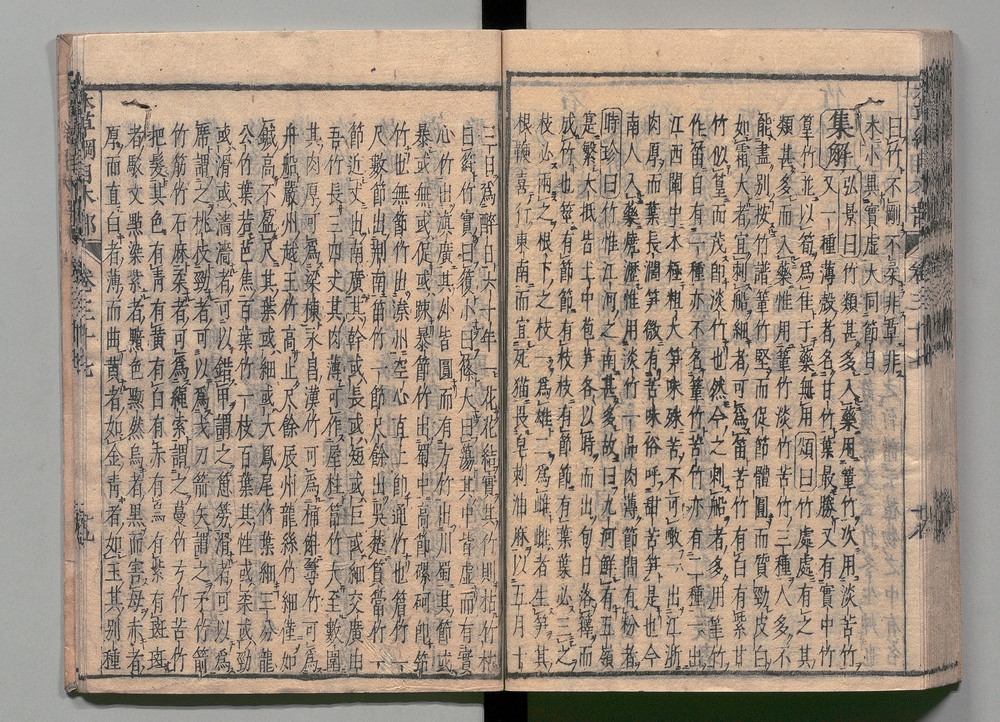 曰竹不剛不柔非草非
木小異實虛大同節目
集解弘景曰竹類甚多入藥用䈽竹次用淡苦竹
又一種薄殼者名甘竹葉最勝又有實中竹
篁竹並以筍爲佳于藥無用頌曰竹處處有之其
類甚多而入藥惟用䈽竹淡竹苦竹三種人多不
能盡別按竹譜䈽竹堅而促節體圓而質勁皮白
如霜大者宜刺船細者可爲笛苦竹有白有紫甘
竹似篁而茂即淡竹也然今之刺船者多用䈽竹
作笛者有一種亦不名䈽竹苦竹亦有二種一出
江西閩中本極粗大笋味殊苦不可噉一出江浙
肉厚而葉長濶笋微有苦味俗呼甜苦笋是也今
南人入藥燒瀝惟用淡竹一品肉薄節間有粉者
時珍曰竹惟江河之南甚多故曰九河鮮有五嶺
寔繁大抵皆土中苞笋各以時而出旬日落籜而
成竹也莖有節節有枝枝有節節有葉葉必三之
枝必兩之根下之枝一爲雄二爲雌雌者生笋其
根鞭喜行東南而宜死猫畏皂刺油麻以五月十
三日爲醉日六十年一花花結實其竹則枯竹枯
曰䈙竹實曰䈊小曰篠大曰簜其中皆虛而有實
心竹出滇廣其外皆圓而有方竹出川蜀其節或
暴或無或促或踈暴節竹出蜀中高節磥砢即筇
竹也無節竹出溱州空心直上即通竹也篃竹一
尺數節出荆南笛竹一節尺餘出吳楚篔簹竹一
節近丈出南廣其幹或長或短或巨或細交廣由
吾竹長三四丈其肉薄可作屋柱䈏竹大至數圍
其肉厚可爲梁棟永昌漢竹可爲桶斛𥯨竹可爲
舟船嚴州越王竹高止尺餘辰州龍絲竹細僅如
鍼高不盈尺其葉或細或大鳳尾竹葉細三分龍
公竹葉若芭蕉百葉竹一枝百葉其性或柔或勁
或滑或濇濇者可以錯甲謂之𥳍䈏滑者可以爲
蓆謂之桃皮勁者可以爲戈刀箭矢謂之矛竹箭
竹筋竹石麻柔者可爲繩索謂之蔓竹弓竹苦竹
把髮其色有靑有黃有白有赤有烏有紫有斑斑
者駁文點染紫者黯色黝然烏者黑而害母赤者
厚而直白者薄而曲黃者如金靑者如玉其別種
本草綱目木部 卷三十七